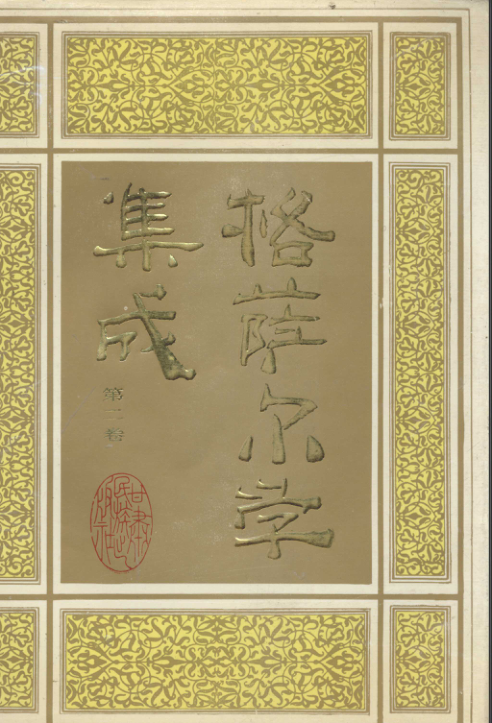 格萨尔学
集成
第二卷
甘肃
民族出
版社